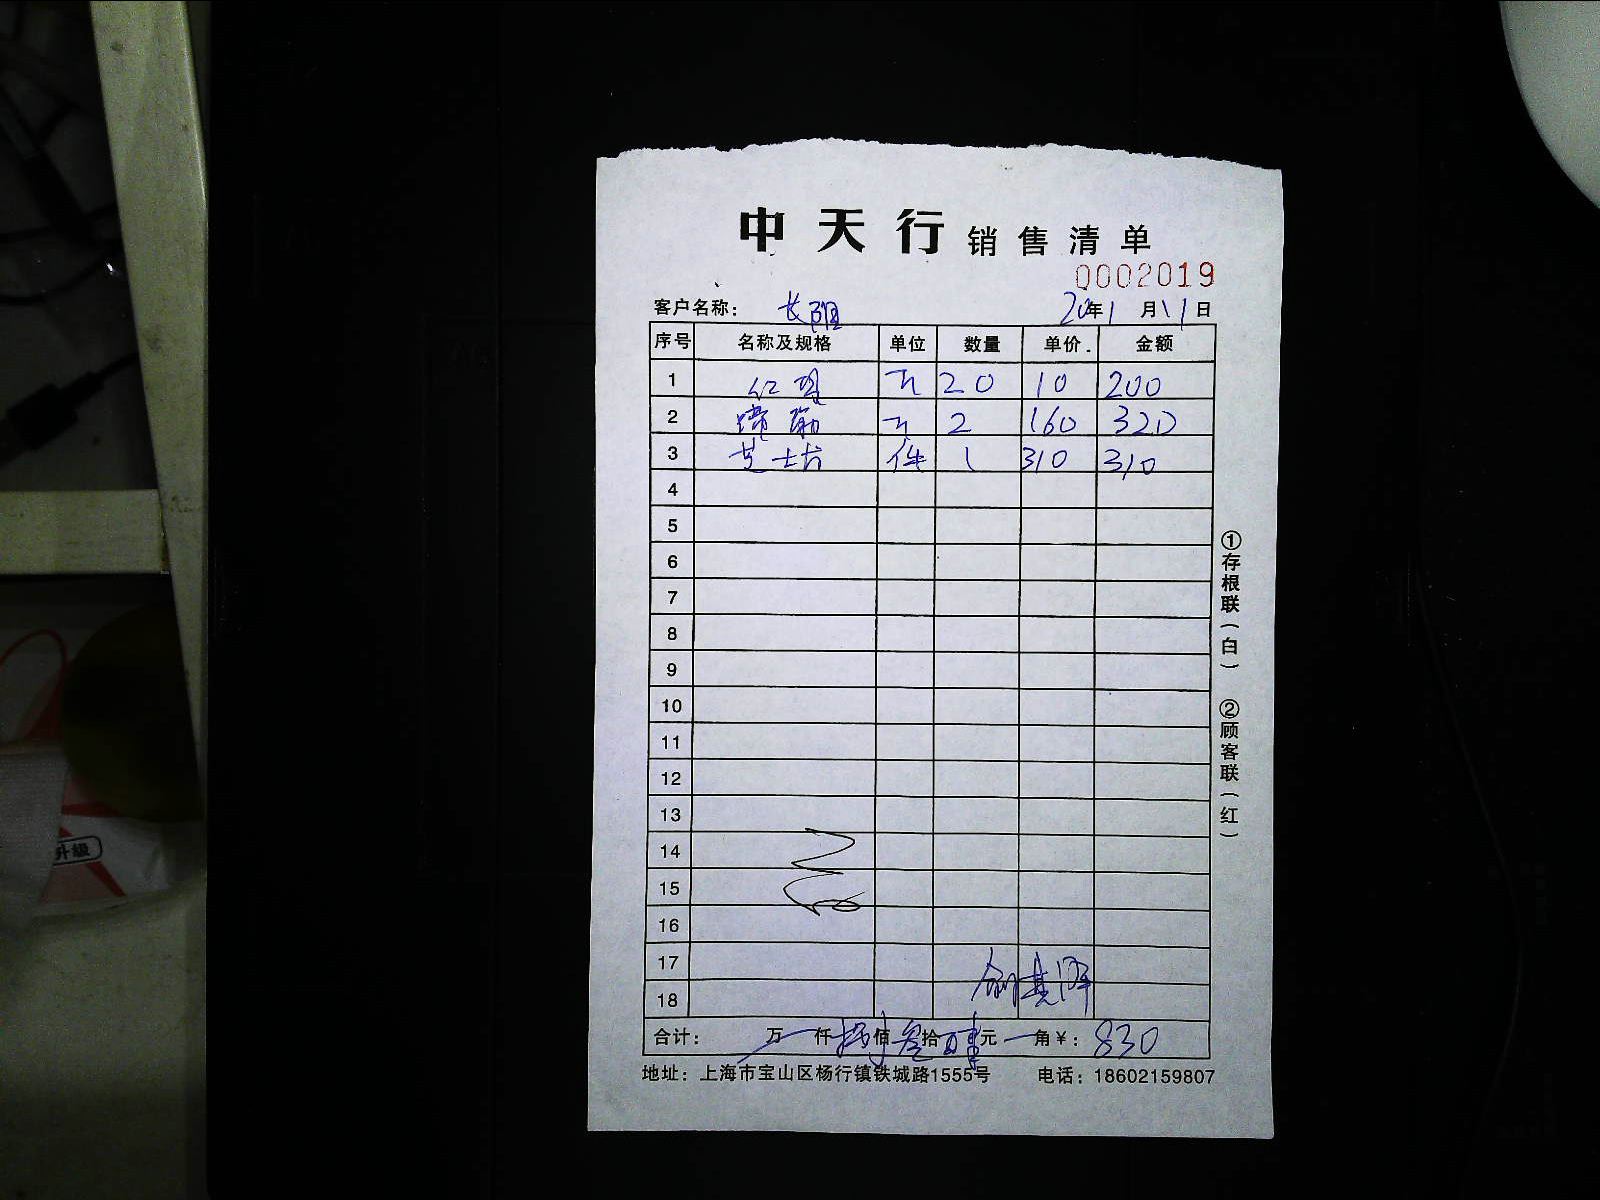 中天行 销售清单
0002019
客户名称： 长阳 20年1月11日
序号 名称及规格 单位 数量 单价 金额
1 红 20 10 200
2 2 160 320
3 芝士片 件 1 310 310
4
5
6
7
8
9
10
11
12
13
14
15
16
17
18
合计： 万 仟捌佰叁拾零元 角¥：830
地址：上海市宝山区杨行镇铁城路1555号 电话：18602159807
①存根联（白） ②顾客联（红）
升級